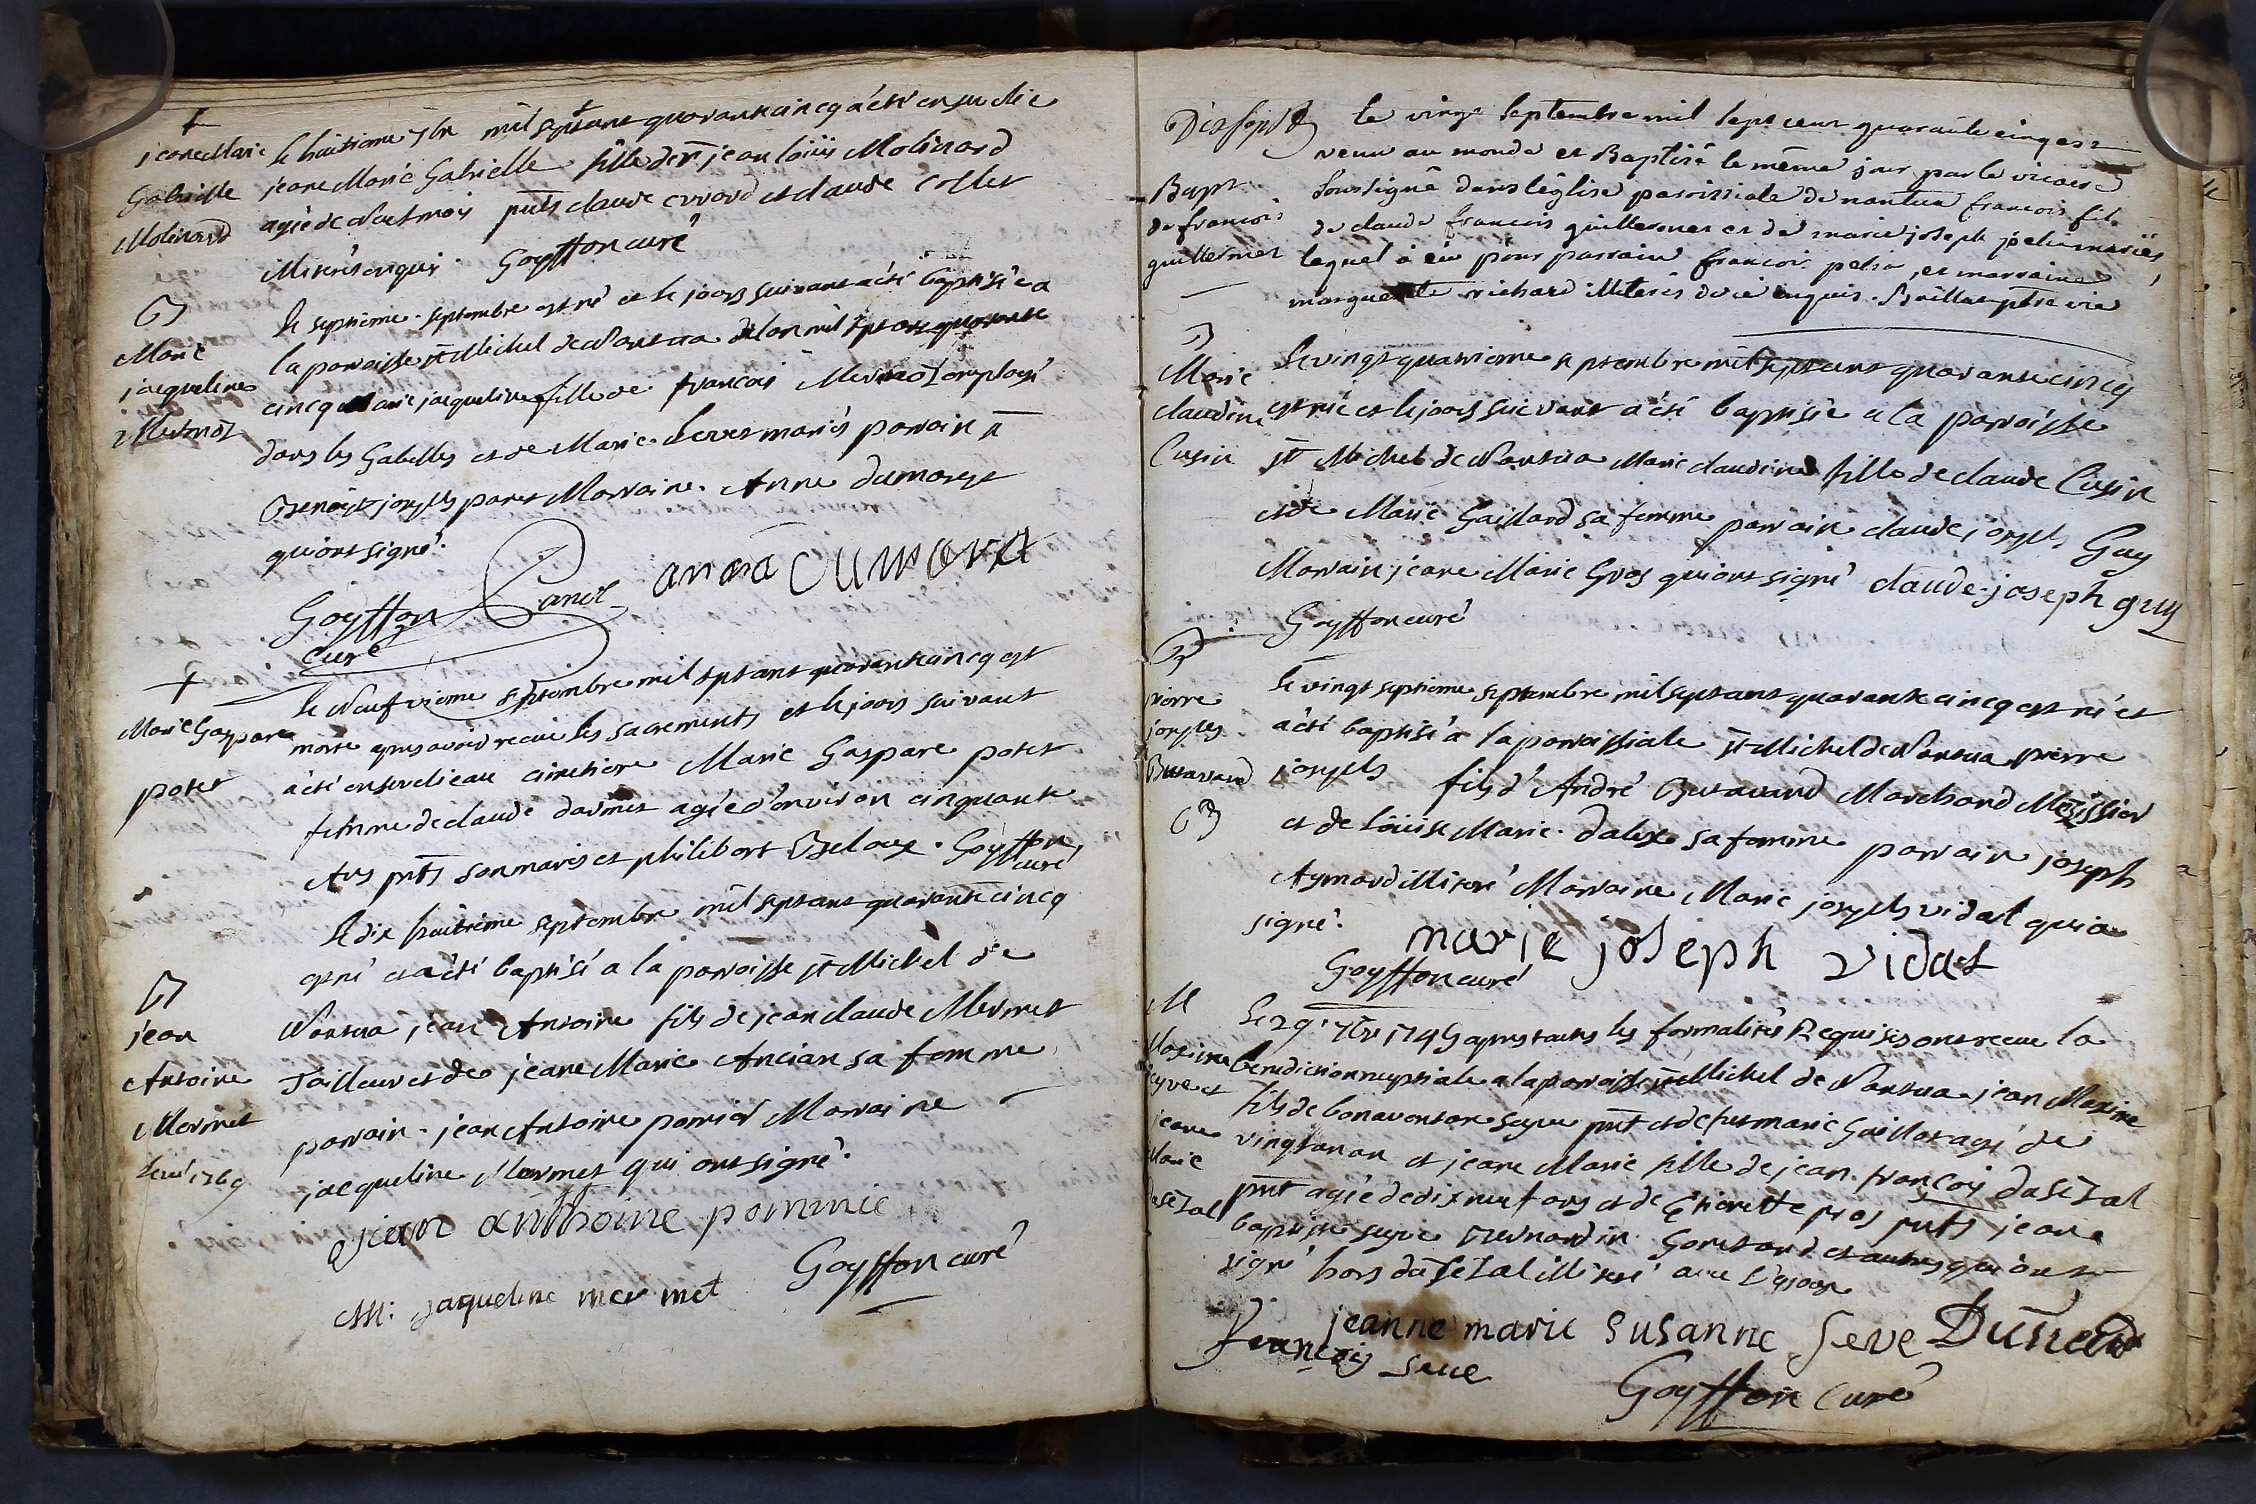 †
jeane Marie
Gabrielle
Molinard
le huitieme 7bre mil sept cent quarante cinq a été ensevelie
jeane Marie Gabrielle fille de sr jean loüis Molinard
agée de neuf mois pnts claude evrard et claude collet
illiterés enquis. Goyffon curé
B
Marie
jacqueline
Mermoz
le septieme septembre est né et le jours suivant a été baptisée a
la parroisse st Michel de Nantua de l'an mil sept cent quarante
cinq Marie jacqueline fille de francois Mermoz employé
dans les Gabelles et de Marie mariés parrain sr
Benoit joseph panet Marraine Anne dumarest
qui ont signé.
Goyffon
curé
Panet
anna dumarest
†
Marie Gaspare
potet
le Neufvieme septembre mil sept cent quarante cinq est
morte apres avoir recue les sacrements et le jours suivant
a été ensevelie au cimetiere Marie Gaspare potet
femme de claude darmet agée d'environ cinquante
Ans pnts son maris et philibert Beloux. Goyffon
curé
B
jean
Antoine
Mermet
1769
le dix huitieme septembre mil sept cent quarante cinq
est né et a été baptisé a la parroisse st Michel de
Nantua jean Antoine fils de jean claude Mermet
Tailleur et de jeane Marie Ancian sa femme
parrain jean Antoine pomier Marraine
jacqueline Mermet qui ont signé.
jean anthoine pommie
M: jaqueline mermet
Goyffon curé
Bapt
de francois
guillermet
Le vingt Septembre mil sept cent quarante cinq est
venu au monde et Baptisé le même jour par le vicaire
soussigné dans l'église paroissiale de nantua francois fils
de claude francois guillermet et de marie joseph pelin mariés,
lequel à eû pour parrain francois pelin, et marraine
marguerite richard illiterés de ce enquis. ptre vic
B
Marie
claudine
Cusin
le vingt quatrieme septembre mil sept cent quarante cinq
est née et le jours suivant a été baptisée a la parroisse
st Michel de Nantua Marie claudine fille de claude Cusin
et de Marie Gaillard sa femme parrain claude joseph Guy
Marraine jeane Marie Gros qui ont signé claude joseph guy
Goyffon curé
B
pierre
joseph
Butavand
B
le vingt septieme septembre mil sept cent quarante cinq est né et
a été baptisé a la parroissiale st Michel de Nantua pierre
joseph fils d'André Butavand Marchand Megissier
et de loüise Marie dalix sa femme parrain joseph
Aymard illiteré Marraine Marie joseph vidal qui a
signé.
marie joseph vidal
Goyffon curé
M
Maxime
seyve et
jeane
Marie
Le 29e 7bre 1745 apres toutes les formalités Requises ont recue la
benediction nuptiale a la parroisse st Michel de Nantua jean Maxime
fils de bonaventure seyve pnt et de fut marie Gaillot agé de
vingt an et jeane Marie fille de jean francois
pnt agée de dix neuf ans et de Etienette pros pnts jean
baptiste seyve Bernardin et autres qui ont
signé hors illiteré avec l'epoux
jeanne marie susanne seve
francois seve
Goyffon curé